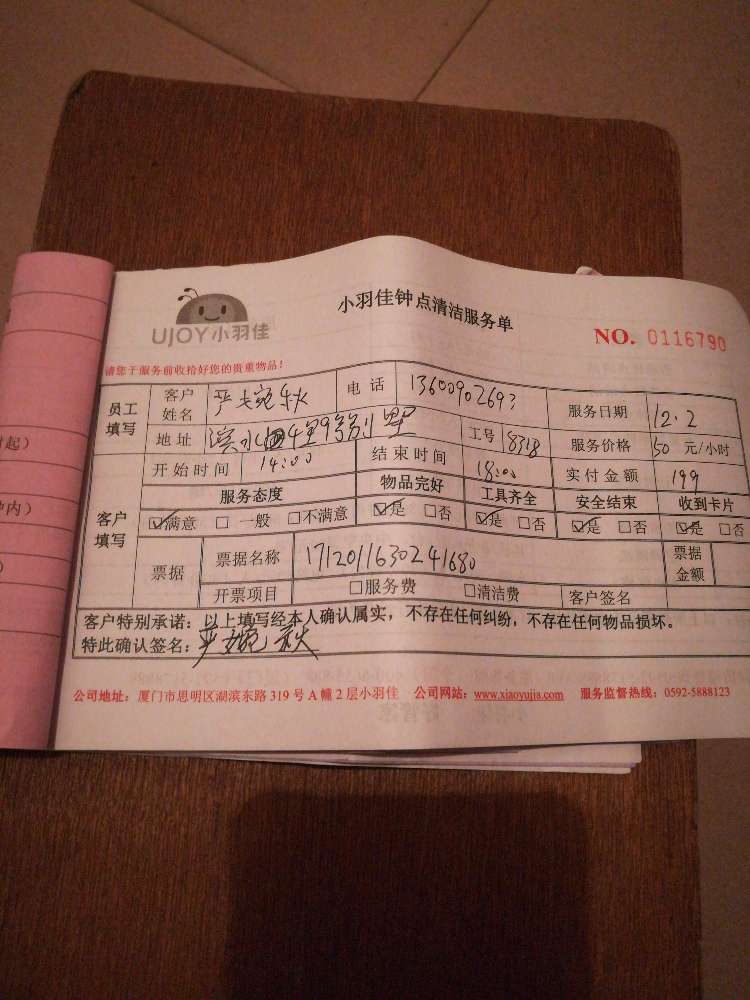 UJOY小羽佳
小羽佳钟点清洁服务单
NO. 0116790
请您于服务前收拾好您的贵重物品!
员工填写 客户姓名 严婉秋 电话 13600902693 服务日期 12.2
地址 滨水四里9号别墅 工号 8318 服务价格 50 元/小时
客户填写 开始时间 14:00 结束时间 18:00 实付金额 199
服务态度 物品完好 工具齐全 安全结束 收到卡片
☑满意 □一般 □不满意 ☑是 □否 ☑是 □否 ☑是 □否 ☑是 □否
票据 票据名称 1712011630241680 票据金额
开票项目 □服务费 □清洁费 客户签名
客户特别承诺:以上填写经本人确认属实,不存在任何纠纷,不存在任何物品损坏。
特此确认签名:严婉秋
公司地址:厦门市思明区湖滨东路 319 号 A 幢 2 层小羽佳 公司网站:www.xiaoyujia.com 服务监督热线:0592-5888123
时起)
内)
)